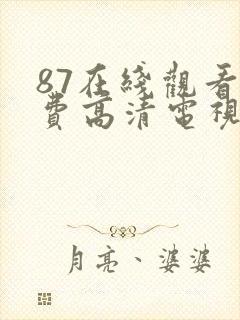 87在綫觀看
費高清電視
月亮、婆婆